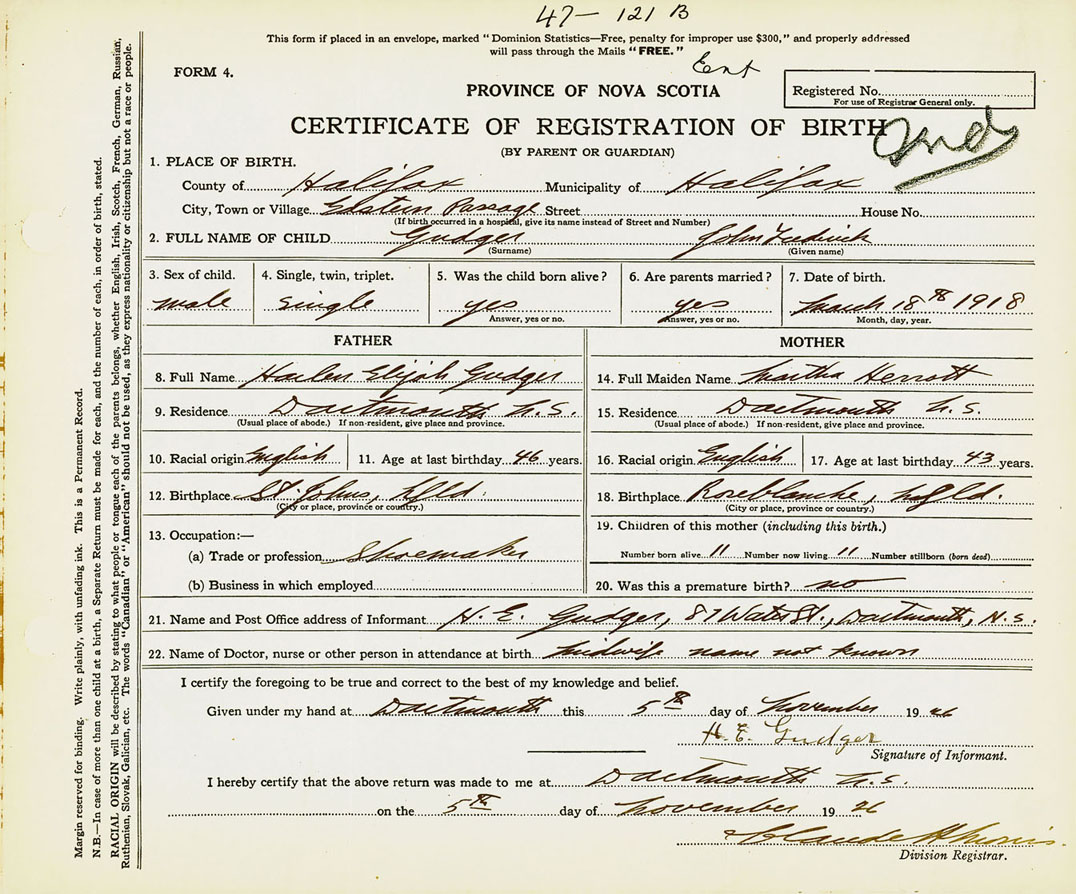 47- 121 B
This form if placed in an envelope, marked "Dominion Statistics—Free, penalty for improper use $300," and properly addressed
will pass through the Mails "FREE."
Ent
FORM 4.
PROVINCE OF NOVA SCOTIA
Registered No.
For use of Registrar General only.
CERTIFICATE OF REGISTRATION OF BIRTH
(BY PARENT OR GUARDIAN)
1. PLACE OF BIRTH.
County of Halifax Municipality of Halifax
City, Town or Village Eastern Passage Street House No.
(If birth occurred in a hospital, give its name instead of Street and Number)
2. FULL NAME OF CHILD Gudger John Fredrick
(Surname) (Given name)
3. Sex of child. 4. Single, twin, triplet. 5. Was the child born alive? 6. Are parents married? 7. Date of birth.
male single yes yes March 18th 1918
Answer, yes or no. Answer, yes or no. Month, day, year.
FATHER MOTHER
8. Full Name Harlen Elijah Gudger 14. Full Maiden Name Martha Herrott
9. Residence Dartmouth N.S. 15. Residence Dartmouth N.S.
(Usual place of abode.) If non-resident, give place and province. (Usual place of abode.) If non-resident, give place and province.
10. Racial origin English 11. Age at last birthday 46 years. 16. Racial origin English 17. Age at last birthday 43 years.
12. Birthplace St. Johns, Nfld. 18. Birthplace Roseblanche, Nfld.
(City or place, province or country.) (City or place, province or country.)
13. Occupation:— 19. Children of this mother (including this birth.)
(a) Trade or profession Shoemaker Number born alive 11 Number now living 11 Number stillborn (born dead)
(b) Business in which employed 20. Was this a premature birth? no
21. Name and Post Office address of Informant H. E. Gudger, 87 Water St., Dartmouth, N.S.
22. Name of Doctor, nurse or other person in attendance at birth midwife name not known
I certify the foregoing to be true and correct to the best of my knowledge and belief.
Given under my hand at Dartmouth this 5th day of November 19 26
H. E. Gudger
Signature of Informant.
I hereby certify that the above return was made to me at Dartmouth N.S.
on the 5th day of November 19 26
Claude H Morris
Division Registrar.
Margin reserved for binding. Write plainly, with unfading ink. This is a Permanent Record.
N.B.—In case of more than one child at a birth, a Separate Return must be made for each, and the number of each, in order of birth, stated.
RACIAL ORIGIN will be described by stating to what people or tongue each of the parents belongs, whether English, Irish, Scotch, French, German, Russian,
Ruthenian, Slovak, Galician, etc. The words "Canadian" or "American" should not be used, as they express nationality or citizenship but not a race or people.